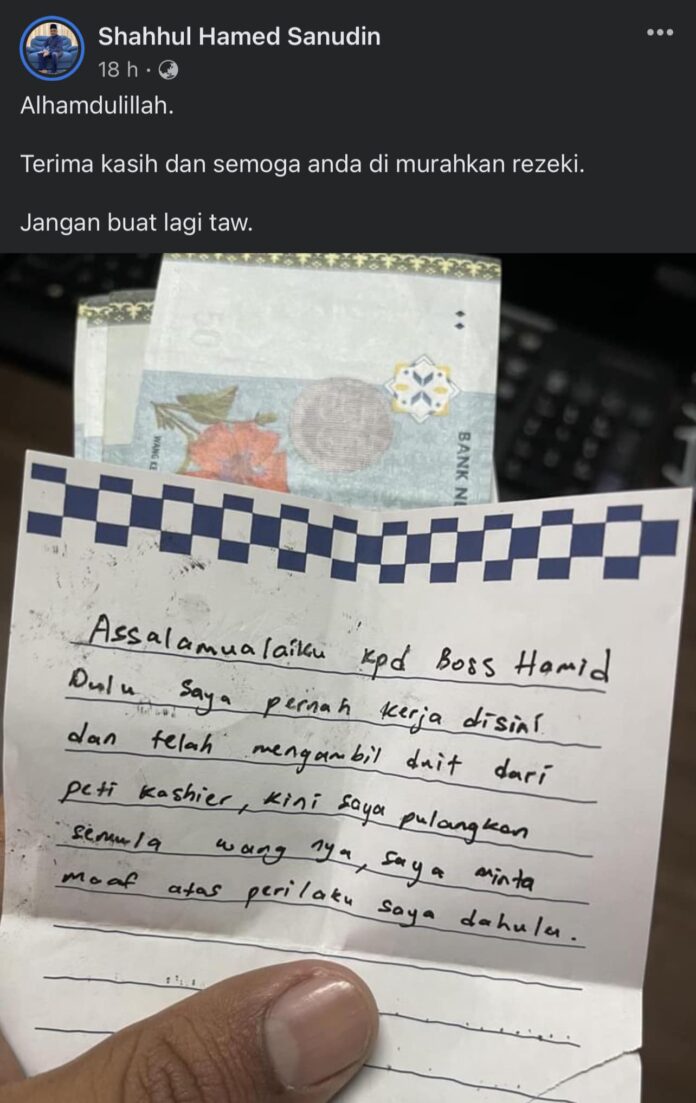 Shahhul Hamed Sanudin
18 h ·
Alhamdulillah.
Terima kasih dan semoga anda di murahkan rezeki.
Jangan buat lagi taw.
50
WANG KE
BANK NE
Assalamualaiku kpd Boss Hamid
Dulu saya pernah kerja disini
dan telah mengambil duit dari
peti kashier, kini saya pulangkan
semula wang nya, saya minta
maaf atas perilaku saya dahulu.